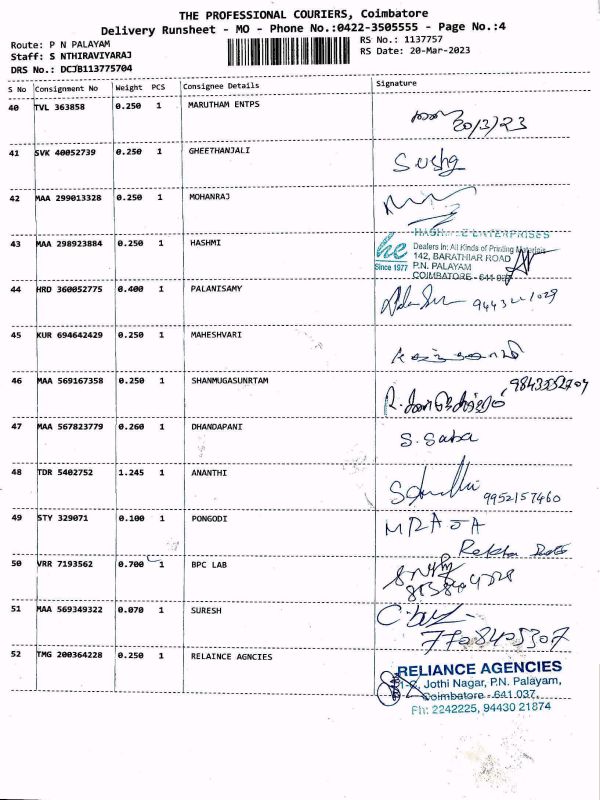 THE PROFESSIONAL COURIERS, Coimbatore
Delivery Runsheet - MO - Phone No.:0422-3505555 - Page No.:4
Route: P N PALAYAM
RS No.: 1137757
Staff: S NTHIRAVIYARAJ
RS Date: 20-Mar-2023
DRS No.: DCJB113775704
S No Consignment No Weight PCS Consignee Details Signature
40 TVL 363858 0.250 1 MARUTHAM ENTPS
20/3/23
41 SVK 40052739 0.250 1 GHEETHANJALI
42 MAA 299013328 0.250 1 MOHANRAJ
43 MAA 298923884 0.250 1 HASHMI
ENTERPRISES
he Dealers in: All Kinds of Printing Materials
142, BARATHIAR ROAD
Since 1977 P.N. PALAYAM
COIMBATORE - 641
44 HRD 360052775 0.400 1 PALANISAMY
45 KUR 694642429 0.250 1 MAHESHVARI
46 MAA 569167358 0.250 1 SHANMUGASUNRTAM
47 MAA 567823779 0.260 1 DHANDAPANI
S. Saba
48 TDR 5402752 1.245 1 ANANTHI
9952157460
49 STY 329071 0.100 1 PONGODI
M RAJA
Rekha
50 VRR 7193562 0.700 1 BPC LAB
51 MAA 569349322 0.070 1 SURESH
7708405307
52 TMG 200364228 0.250 1 RELAINCE AGNCIES
RELIANCE AGENCIES
Jothi Nagar, P.N. Palayam,
Coimbatore - 641 037.
Ph: 2242225, 94430 21874